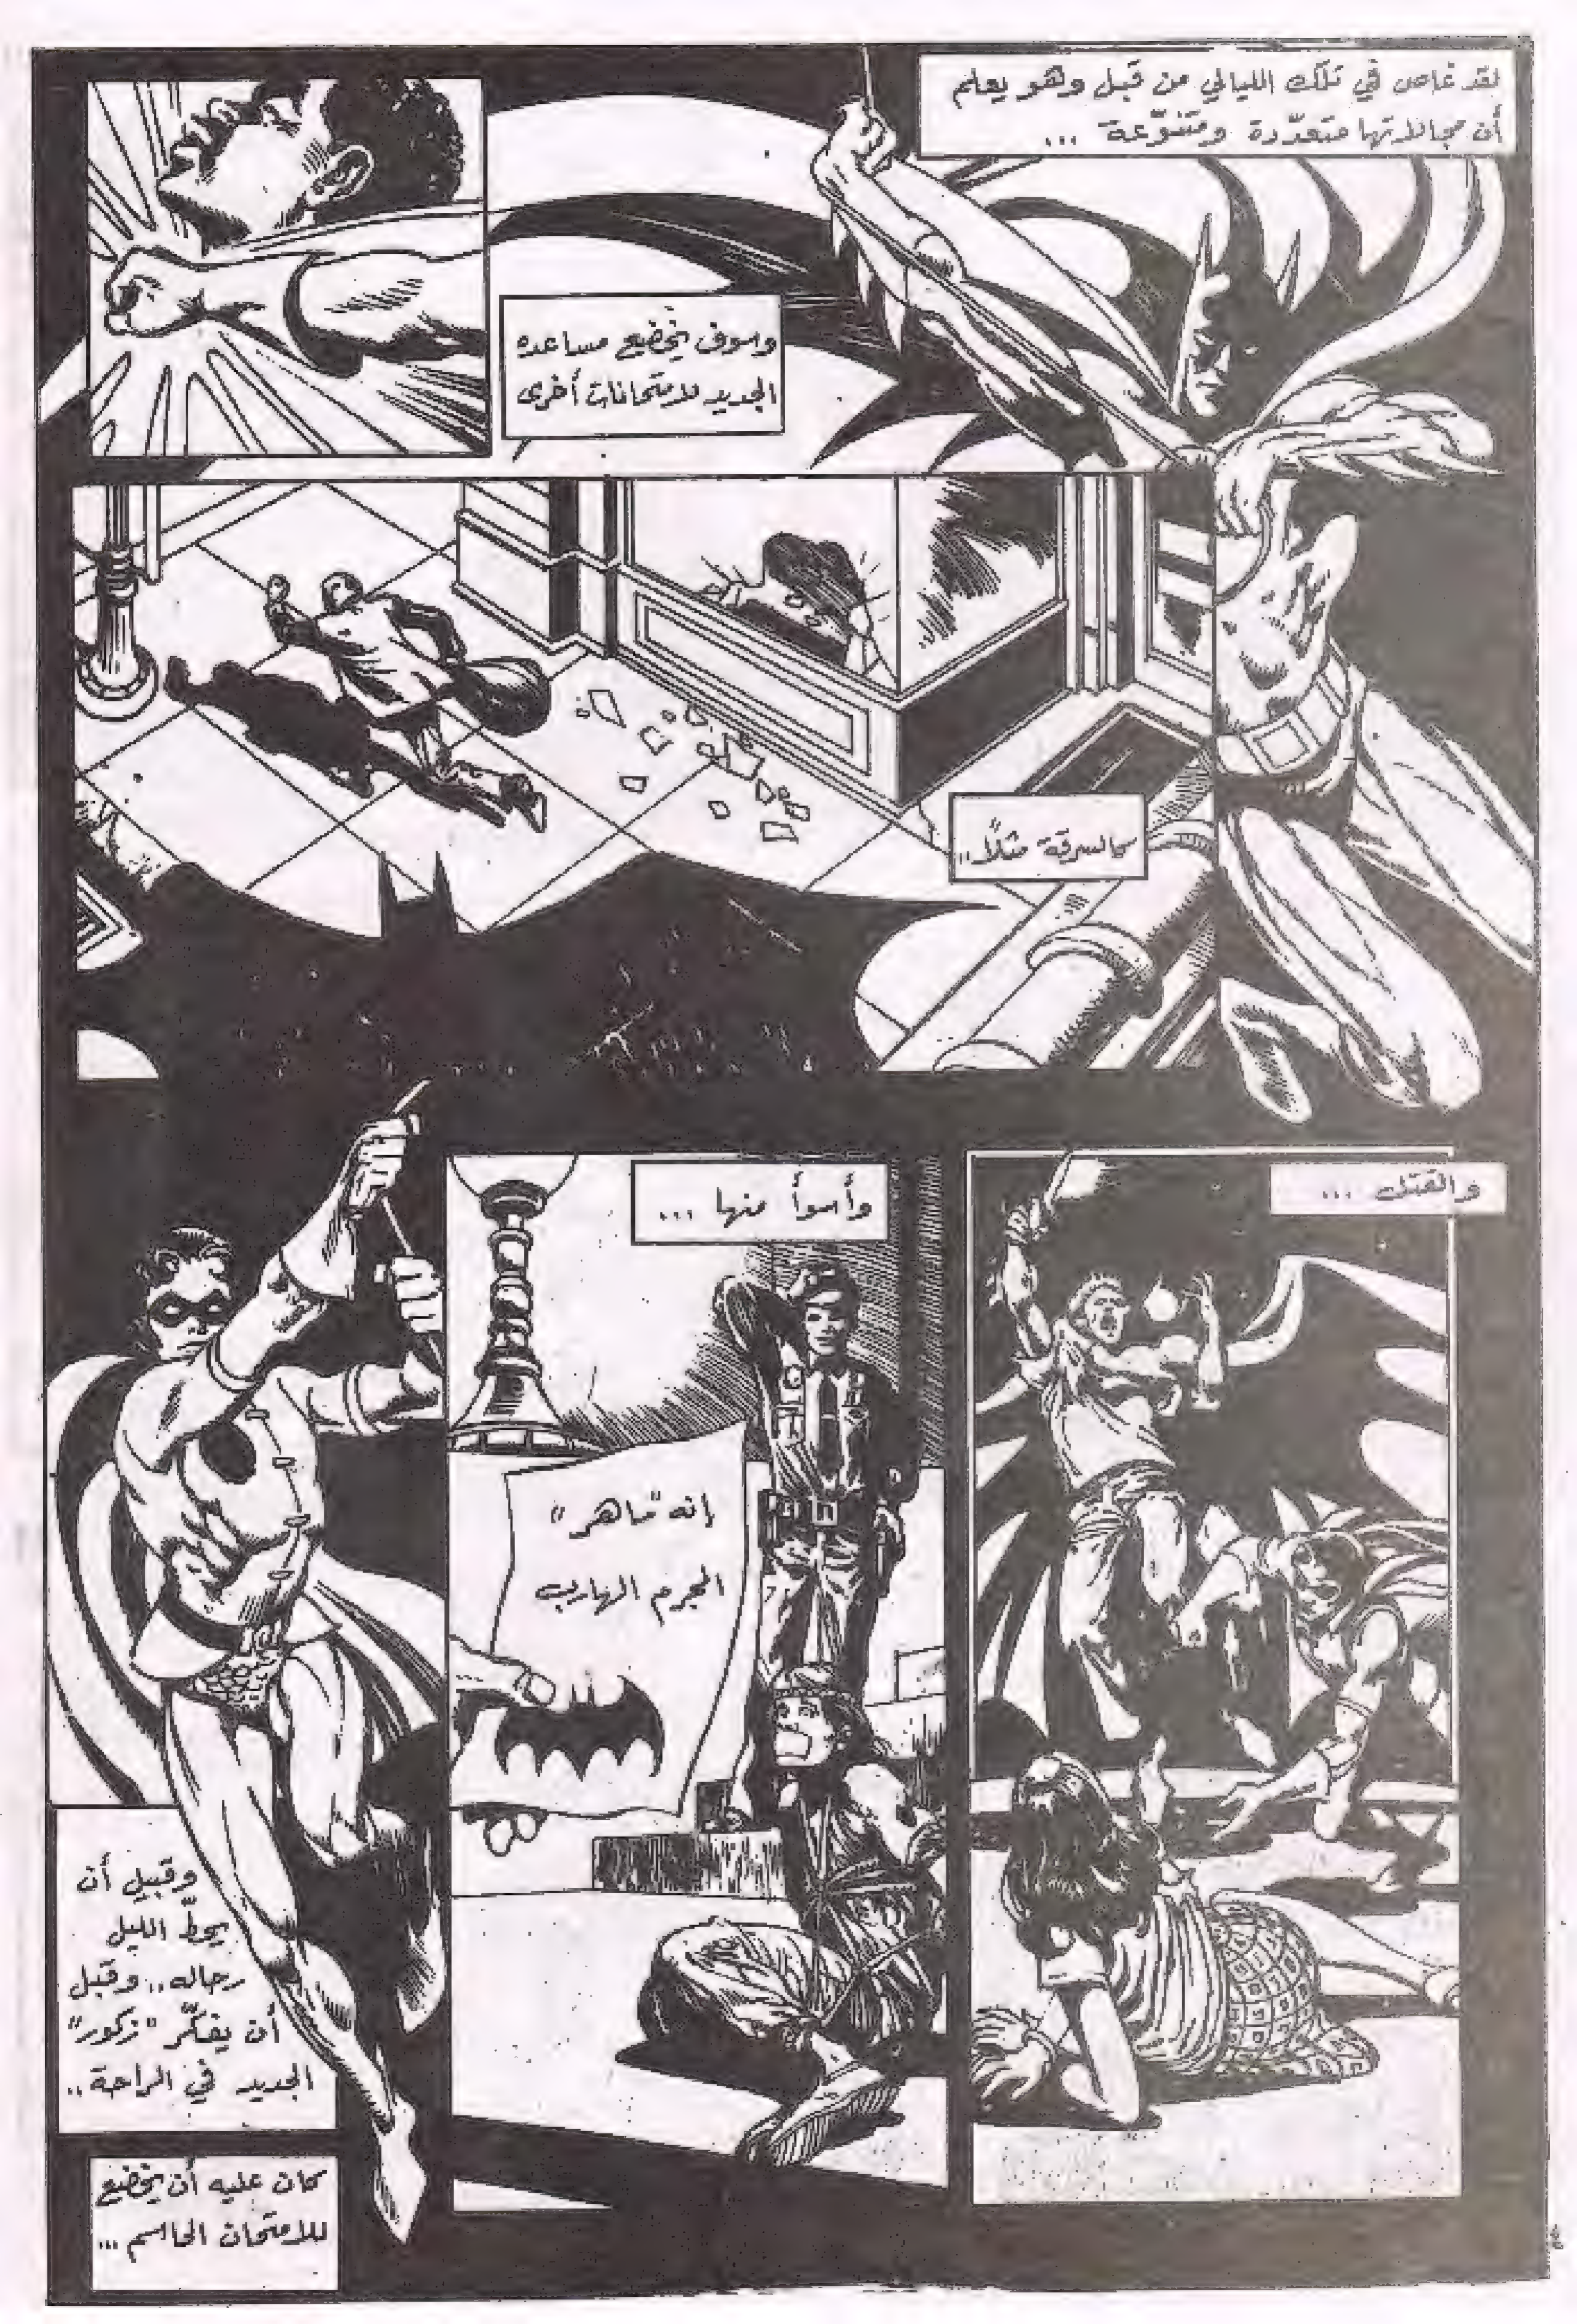 لقد غاص في تلك الليالي من قبل وهو يعلم
أن مجالاتها متعدّدة ومتنوّعة ...
وسوف يخضع مساعده
الجديد للامتحانات أخرى
كالسرقة مثلاً..
والقتل ...
وأسوأ منها ...
إنه "ماهر"
المجرم الهارب
وقبيل أن
يحطّ الليل
رحاله.. وقبل
أن يفكّر "زكور"
الجديد في الراحة..
كان عليه أن يخضع
للامتحان الحاسم ...